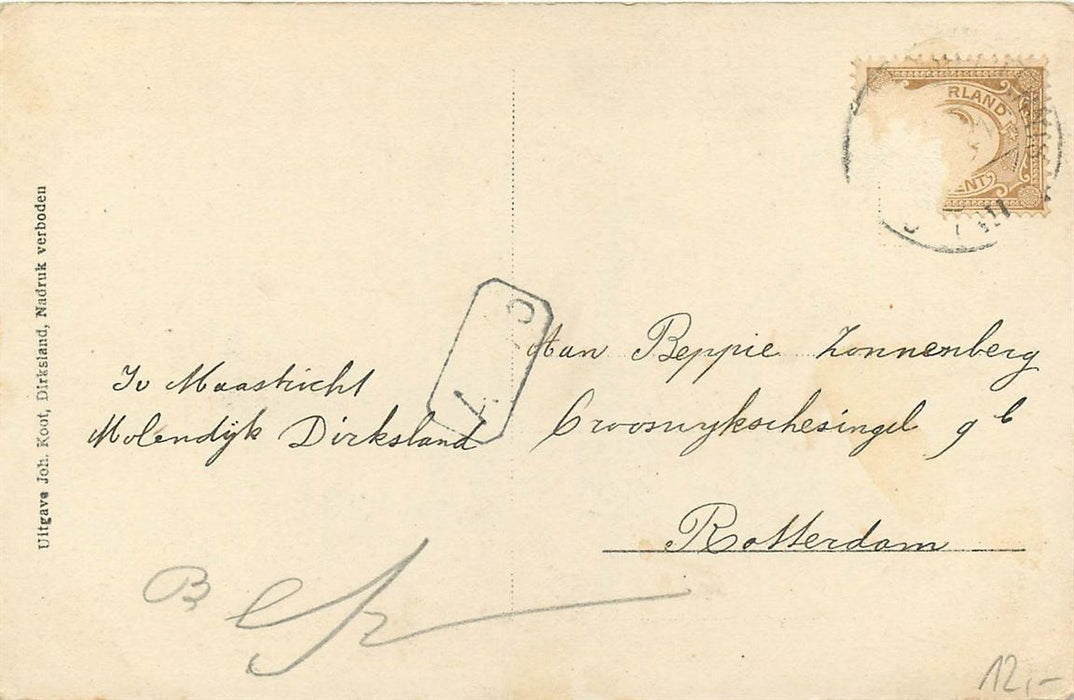 Uitgave Joh. Koot, Dirksland, Nadruk verboden
RLAND
CENT
Jo Maastricht
Molendijk Dirksland
Aan Beppie Zonnenberg
Crooswykschesingel 9 b
Rotterdam
12,-